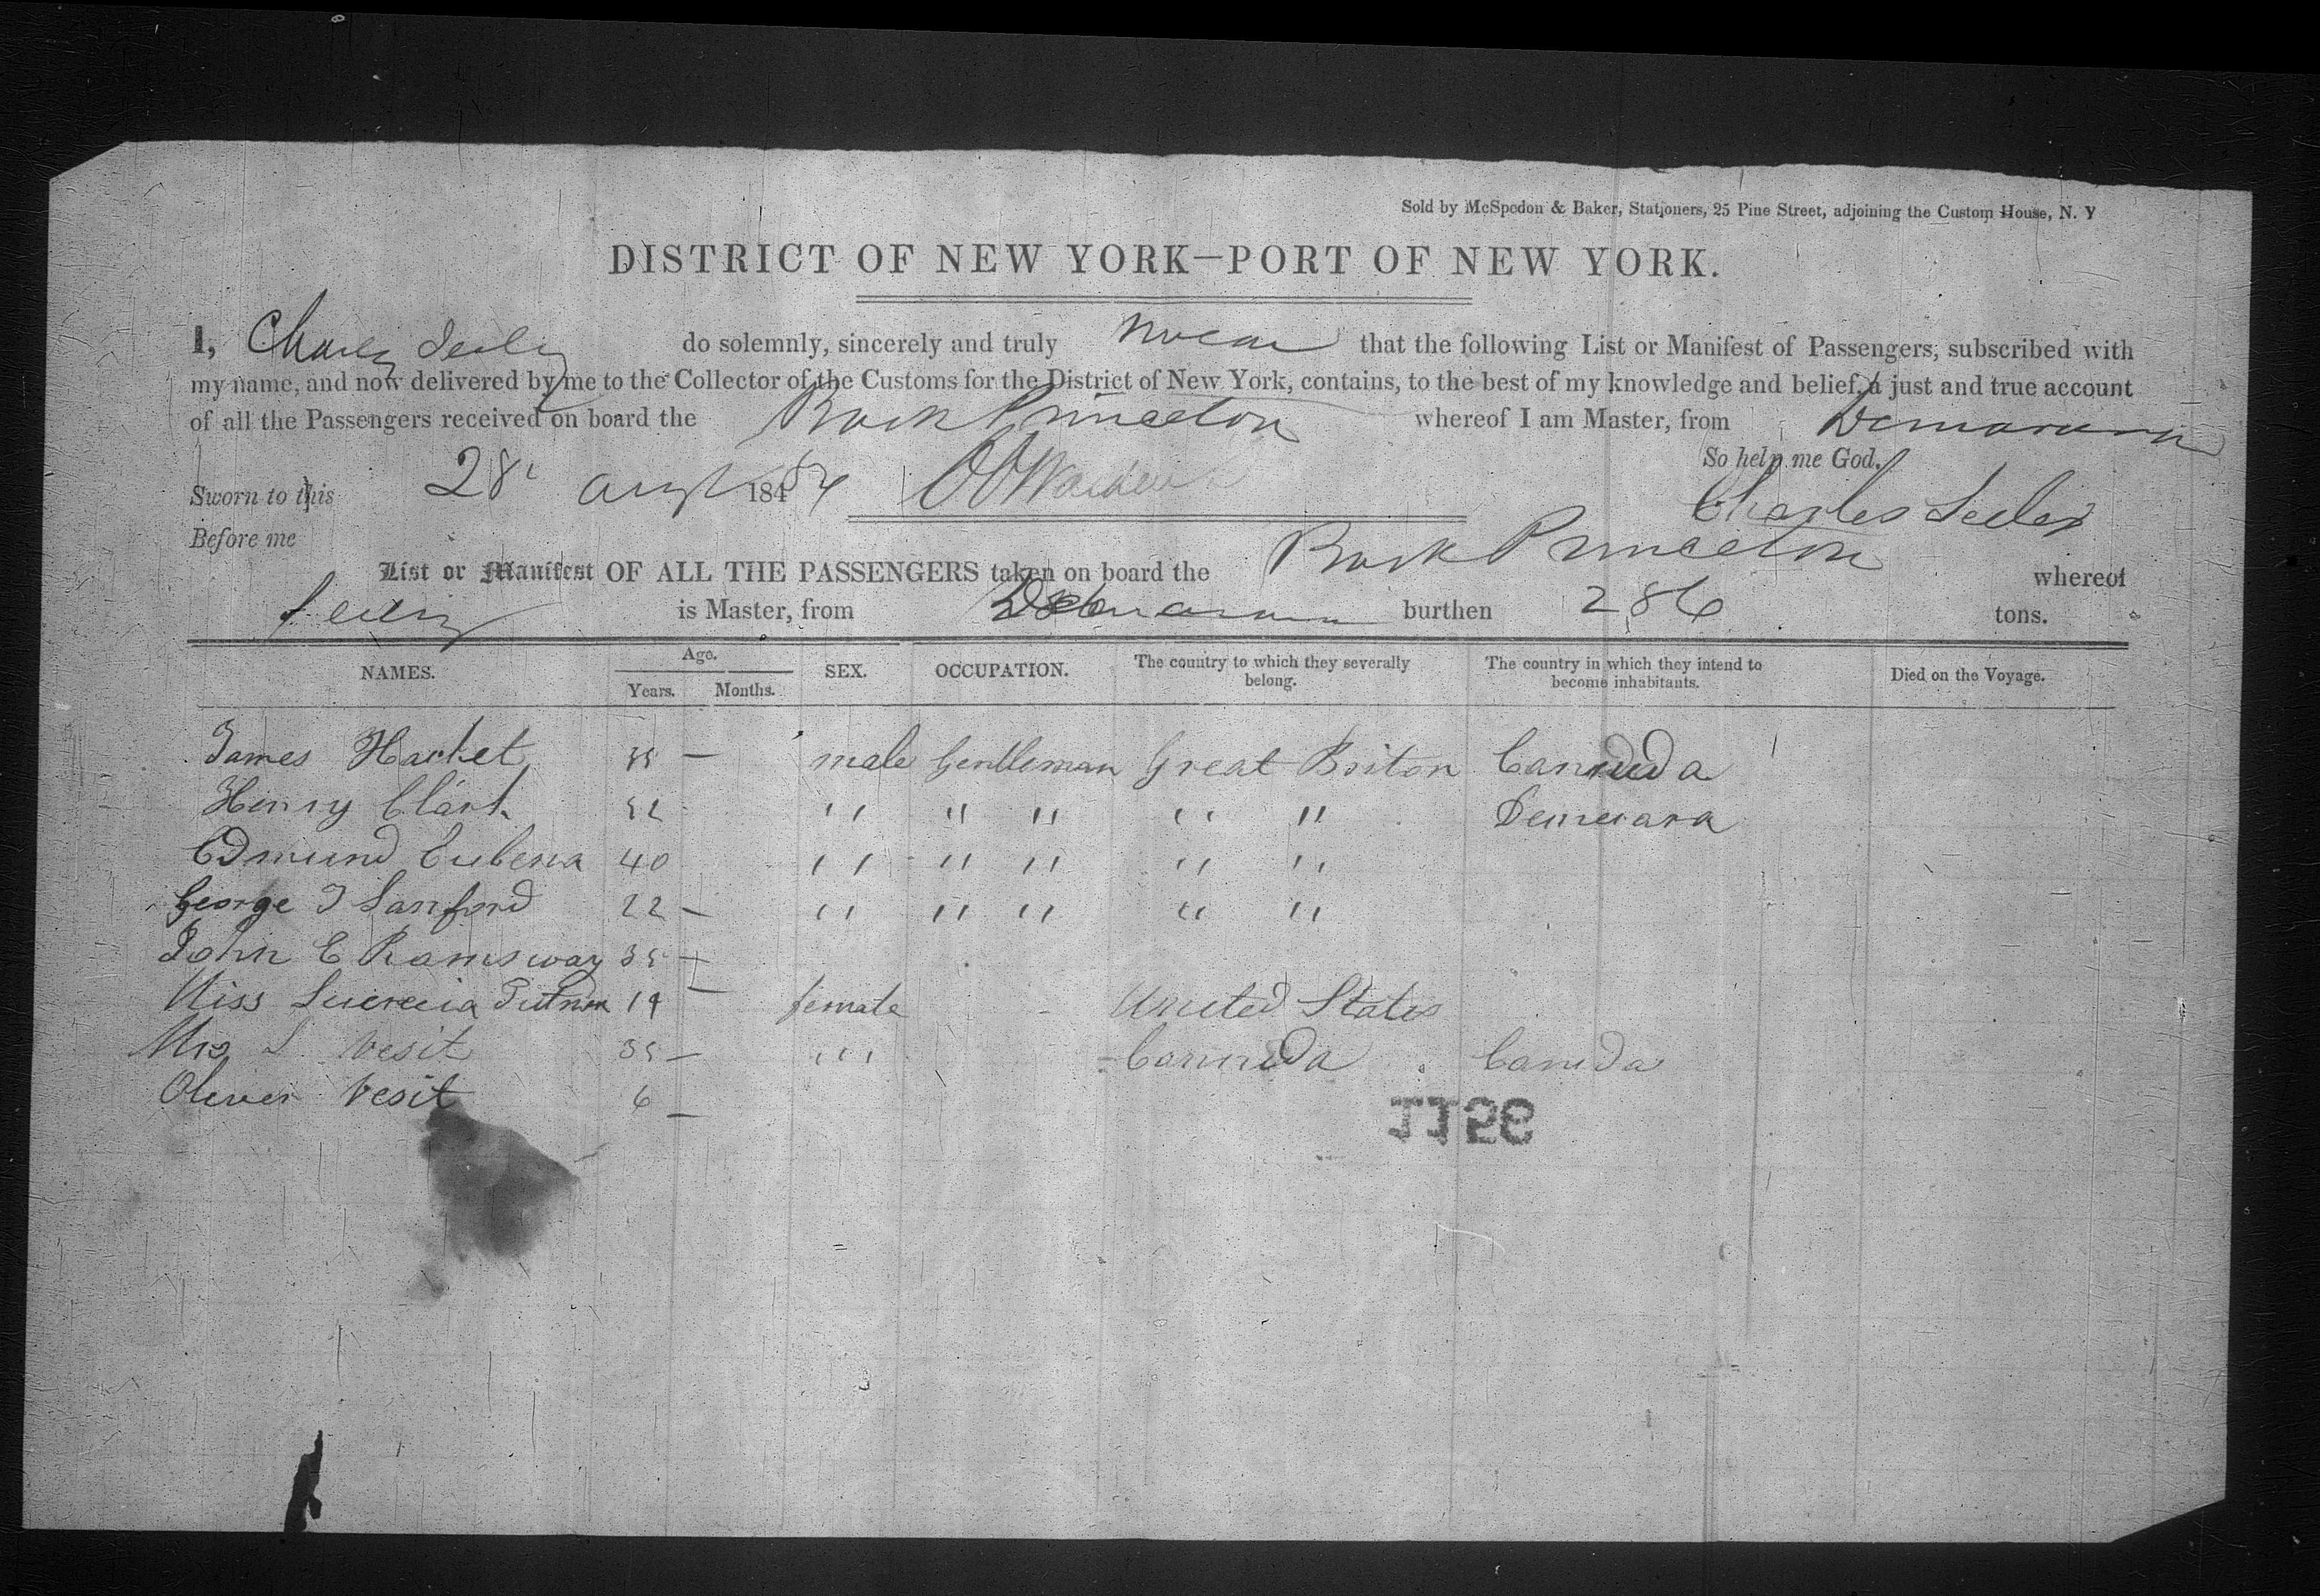 Sold by McSpedon & Baker, Stationers, 25 Pine Street, adjoining the Custom House, N. Y
DISTRICT OF NEW YORK—PORT OF NEW YORK.
I, Charles Seeley do solemnly, sincerely and truly swear that the following List or Manifest of Passengers, subscribed with
my name, and now delivered by me to the Collector of the Customs for the District of New York, contains, to the best of my knowledge and belief, a just and true account
of all the Passengers received on board the Bark Princeton whereof I am Master, from Demarara
So help me God.
Sworn to this 28 Augt 184
Charles Seeley
Before me
List or Manifest OF ALL THE PASSENGERS taken on board the Bark Princeton whereof
Seeley is Master, from Demarara burthen 286 tons.
NAMES. Age. Years. Months. SEX. OCCUPATION. The country to which they severally belong. The country in which they intend to become inhabitants. Died on the Voyage.
James Hacket — male Gentleman Great Briton Canada
Henry Clark " " " " " Demerara
Edmund 40 " " " " "
George T Sanford 22 — " " " " "
John C Ramsway 35 —
Miss Lucrecia Putnam 19 — female United States
Mrs L. Vesit 35 — " Cannada Canida
Oliver Vesit 6 —
1156